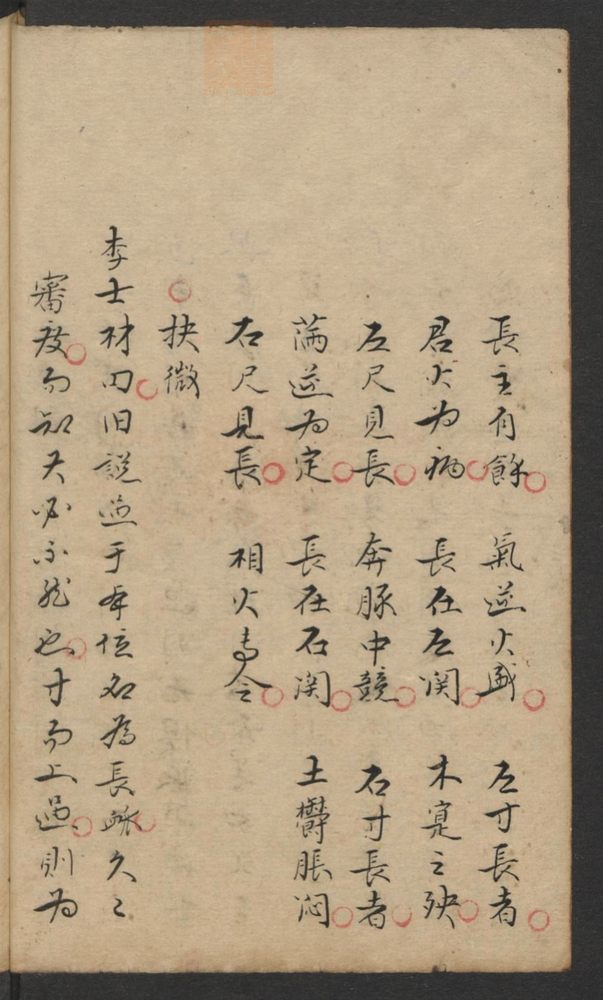 長主有餘 氣逆火盛 左寸長者
君火为病 長在左関 木寔之殃
左尺見長 奔豚中競 右寸長者
滿逆为定 長在右関 土欝脹闷
右尺見長 相火専令
扶微
李士材曰旧說過于本位名為長脉久々
審度而知其必不然也寸而上過則为